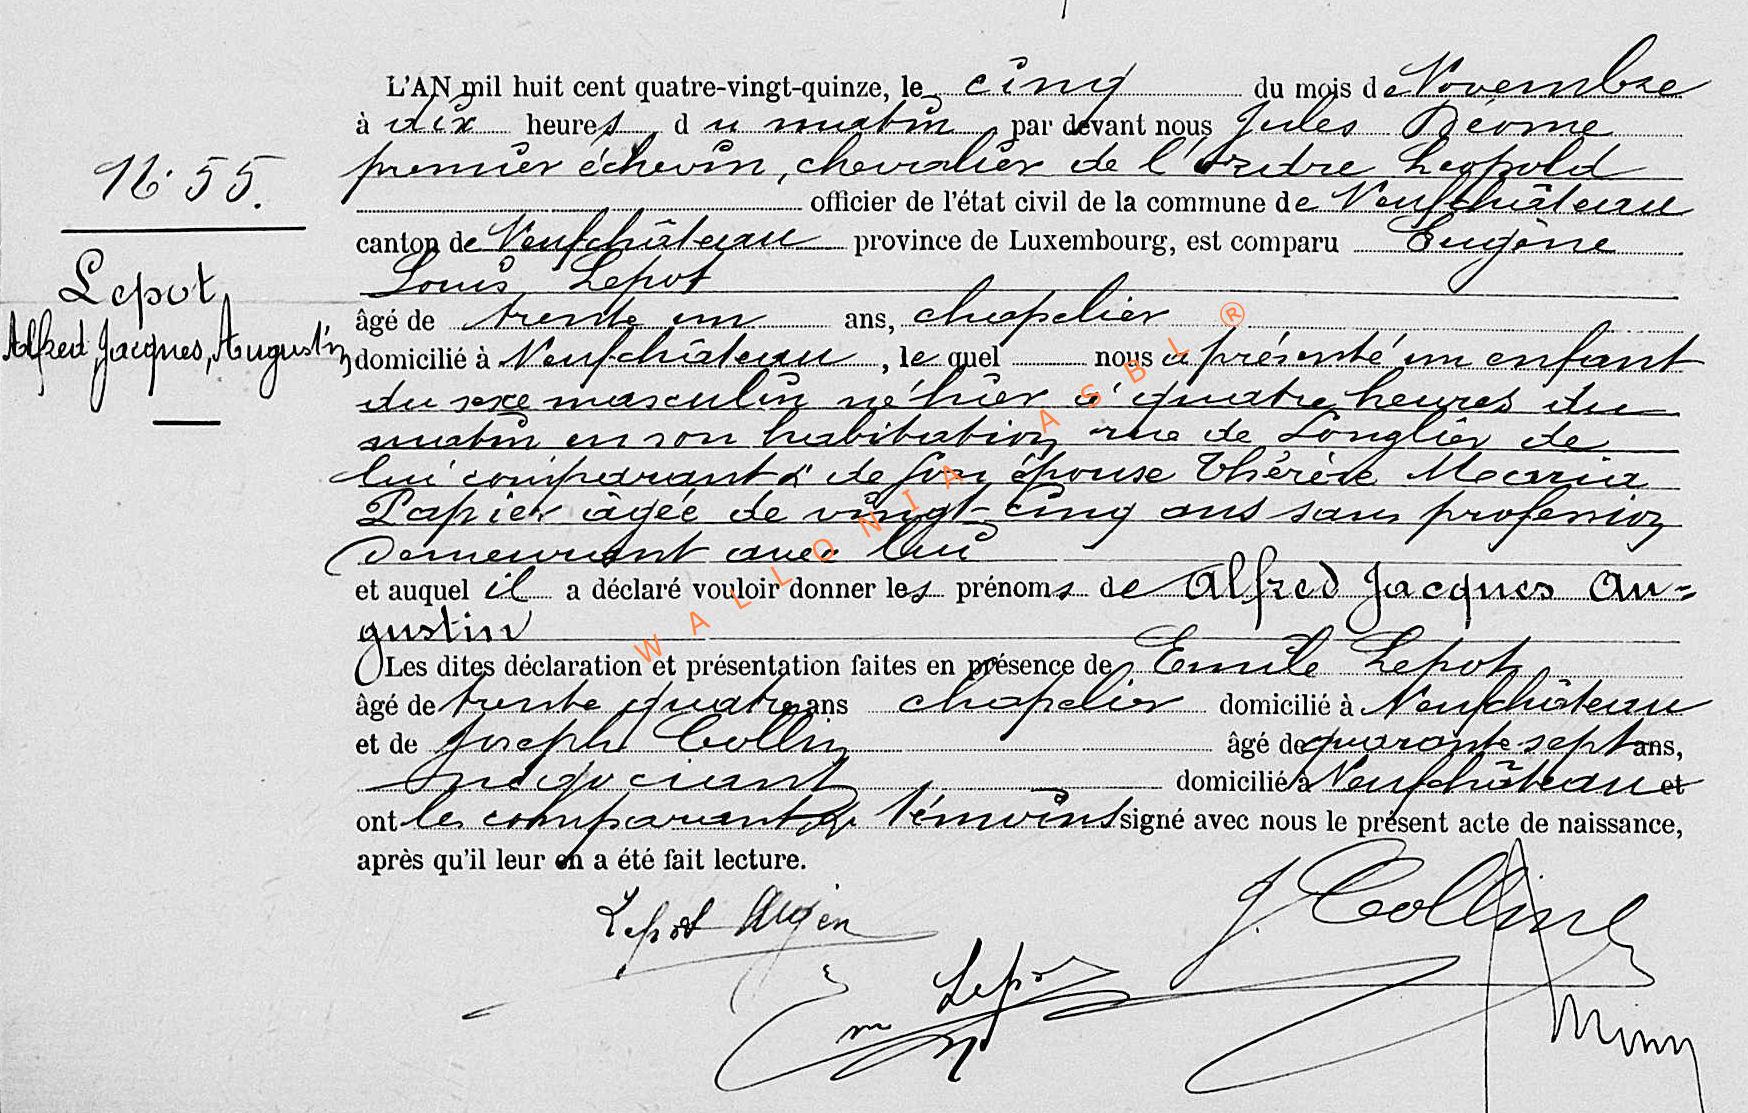 L'AN mil huit cent quatre-vingt-quinze, le cinq du mois de Novembre
à dix heures du matin par devant nous Jules Déome
premier échevin, chevalier de l'ordre Leopold
officier de l'état civil de la commune de Neufchâteau
canton de Neufchâteau province de Luxembourg, est comparu Eugène
Louis Lepot
âgé de trente un ans, chapelier
domicilié à Neufchâteau, lequel nous a présenté un enfant
du sexe masculin né hier à quatre heures du
matin en son habitation rue de Longlier de
lui comparant & de son épouse Thérèse Maria
Papier âgée de vingt-cinq ans sans profession
demeurant avec lui
et auquel il a déclaré vouloir donner les prénoms de Alfred Jacques Au=
gustin
Les dites déclaration et présentation faites en présence de Emile Lepot
âgé de trente quatre ans chapelier domicilié à Neufchâteau
et de Joseph Collin âgé de quarante-sept ans,
négociant domicilié à Neufchâteau et
ont les comparant & témoins signé avec nous le présent acte de naissance,
après qu'il leur en a été fait lecture.
N° 55.
Lepot
Alfred Jacques, Augustin
Lepot
J. Collin
Lepot
WALLONIA ASBL ®